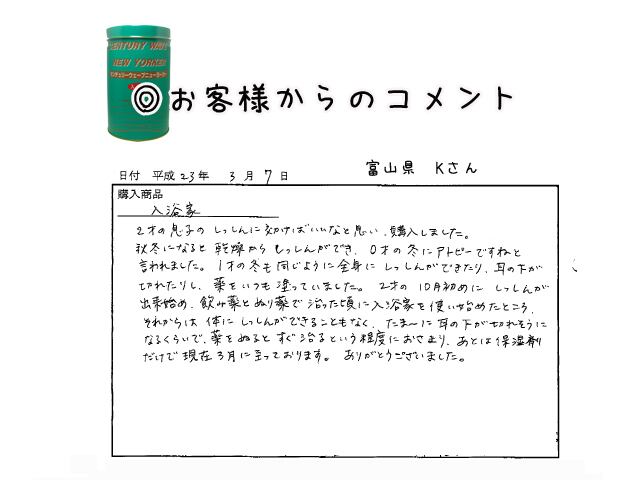 CENTURY WAVE
NEW YORKER
センチュリーウェーブニューヨーカー
お客様からのコメント
日付 平成23年 3月7日
富山県 Kさん
購入商品
入浴家
2才の息子のしっしんに効けばいいなと思い、購入しました。
秋冬になると乾燥からしっしんができ、0才の冬にアトピーですねと
言われました。1才の冬も同じように全身にしっしんができたり、耳の下が
切れたりし、薬をいつも塗っていました。2才の10月初めにしっしんが
出来始め、飲み薬とぬり薬で治った頃に入浴家を使い始めたところ、
それからは体にしっしんができることもなく、たまーに耳の下が切れそうに
なるくらいで、薬をぬるとすぐ治るという程度におさまり、あとは保湿剤
だけで現在3月に至っております。ありがとうございました。